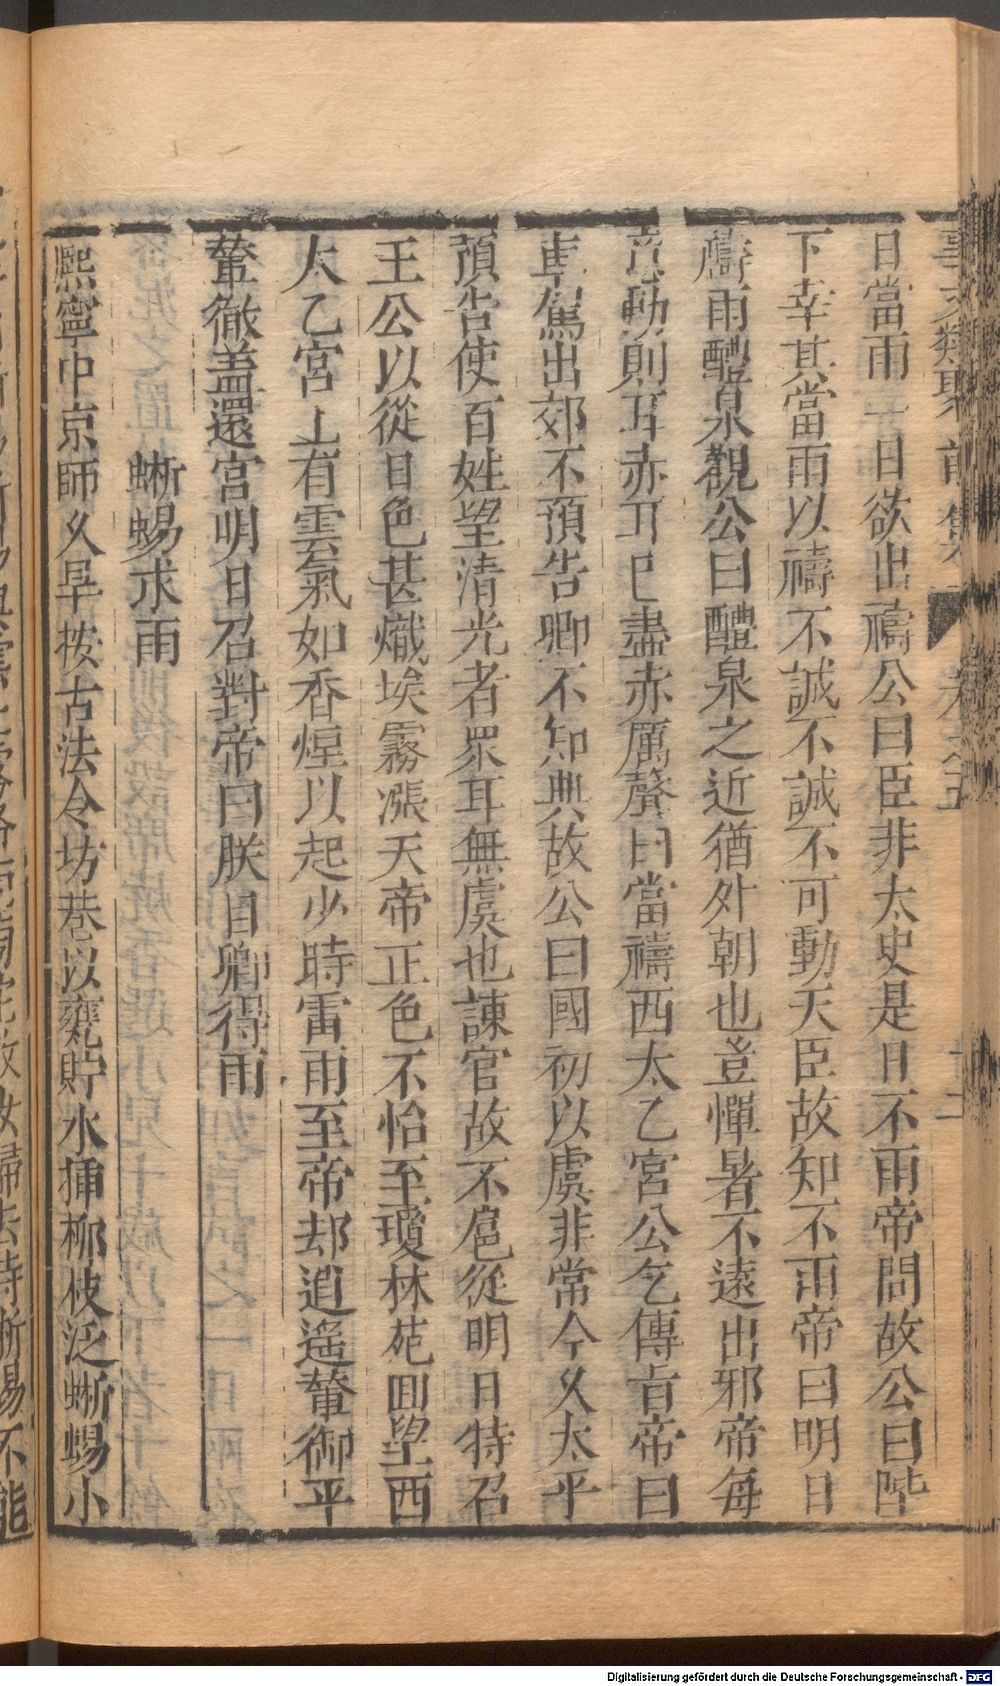 事文類聚 前集 卷之五
日當雨一日欲出禱公曰臣非太史是日不雨帝問故公曰陛
下幸其當雨以禱不誠不誠不可動天臣故知不雨帝曰明日
禱雨醴泉觀公曰醴泉之近猶外朝也豈憚暑不遠出邪帝每
意動則耳赤耳已盡赤厲聲曰當禱西太乙宮公乞傳旨帝曰
車駕出郊不預告卿不知典故公曰國初以虞非常今久太平
預告使百姓望清光者眾耳無虞也諫官故不扈從明日特召
王公以從日色甚熾埃霧漲天帝正色不怡至瓊林苑回望西
太乙宮上有雲氣如香煙以起少時雷雨至帝却逍遙輦御平
輦徹盖還宮明日召對帝曰朕自卿得雨
蜥蜴求雨
熙寧中京師久旱按古法令坊巷以甕貯水揷柳枝泛蜥蜴小
Digitalisierung gefördert durch die Deutsche Forschungsgemeinschaft - DFG